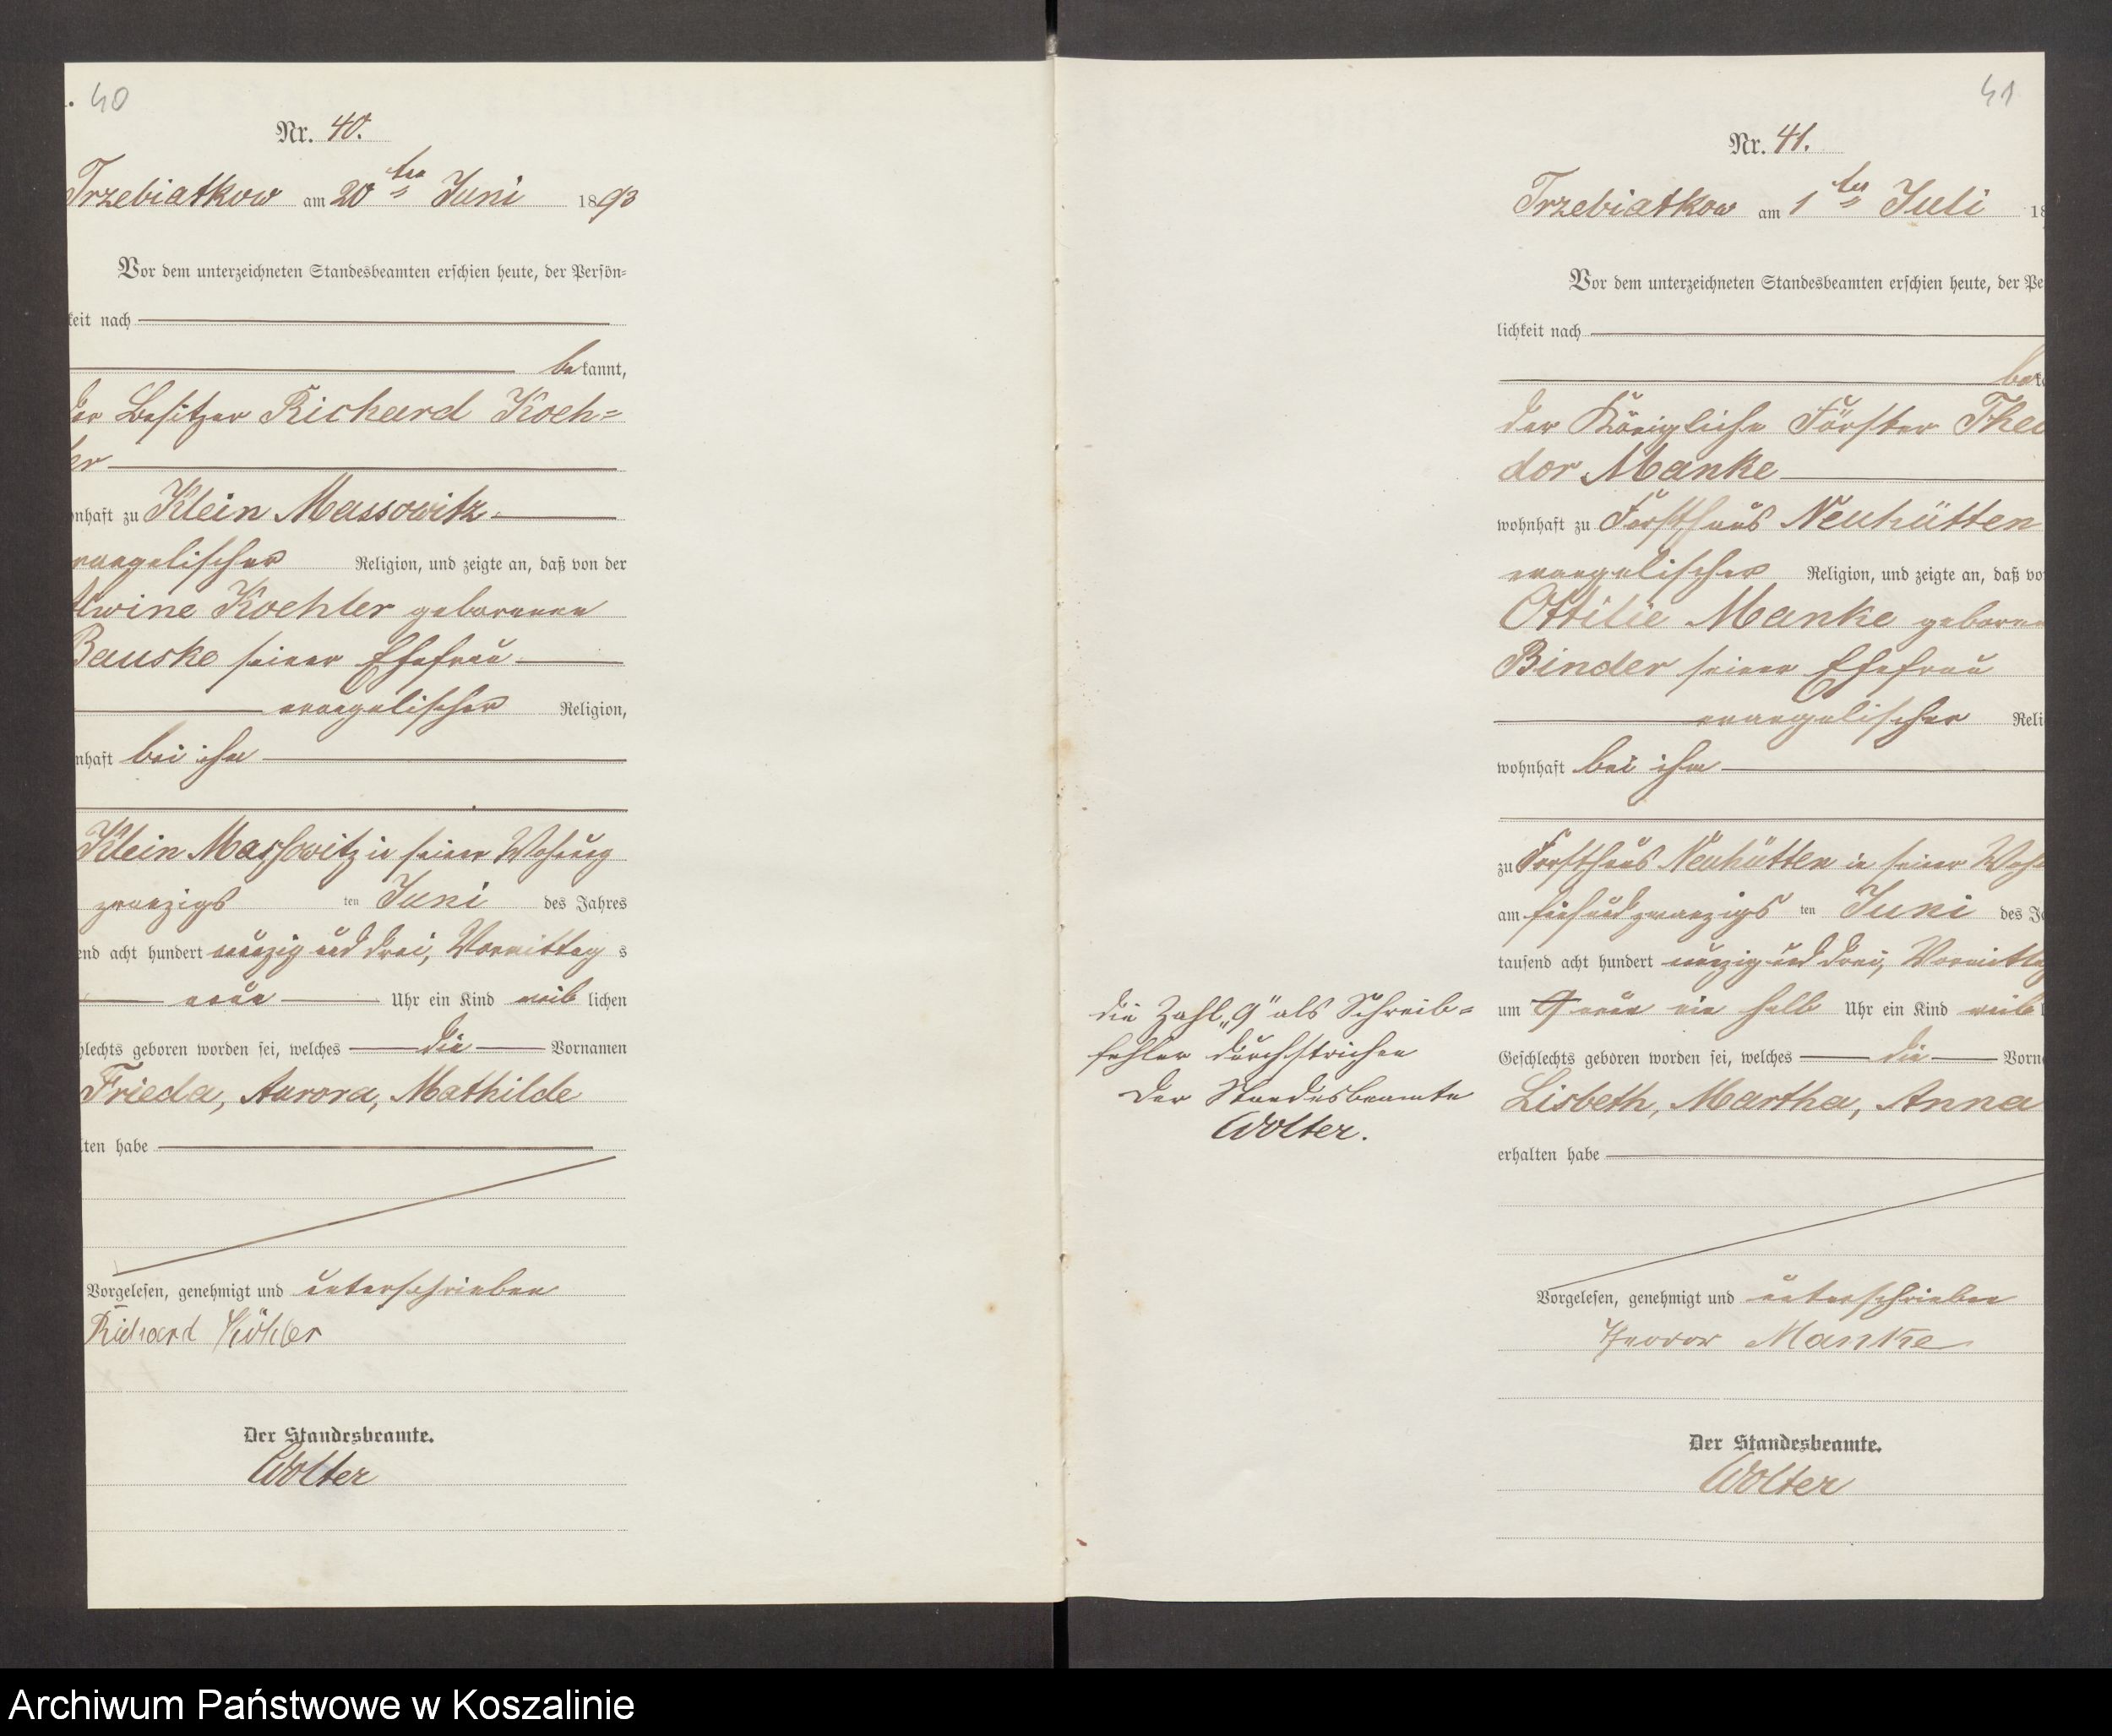 40
Nr. 40.
Trzebiatkow am 20 ten Juni 1893
Vor dem unterzeichneten Standesbeamten erschien heute, der Persön=
keit nach
bekannt,
der Besitzer Richard Koeh=
ler
nhaft zu Klein Massowitz
vangelischer Religion, und zeigte an, daß von der
Alwine Koehler geborenen
Bauske seiner Ehefrau
evangelischer Religion,
nhaft bei ihm
Klein Massowitz in seiner Wohnung
zwanzigs ten Juni des Jahres
end acht hundert neunzig und drei, Vormittag s
neun Uhr ein Kind weib lichen
hlechts geboren worden sei, welches die Vornamen
Frieda, Aurora, Mathilde
lten habe
Vorgelesen, genehmigt und unterschrieben
Richard Köhler
Der Standesbeamte.
Wolter
41
Nr. 41.
Trzebiatkow am 1 ten Juli 18
Vor dem unterzeichneten Standesbeamten erschien heute, der Pe
lichkeit nach
bek
der Königliche Förster Theo
dor Manke
wohnhaft zu Forsthaus Neuhütten
evangelischer Religion, und zeigte an, daß vo
Ottilie Manke geboren
Binder seiner Ehefrau
evangelischer Reli
wohnhaft bei ihm
zu Forsthaus Neuhütten in seiner Woh
am fünfundzwanzigs ten Juni des J
tausend acht hundert neunzig und drei, Vormittag
um 9 neun ein halb Uhr ein Kind weib l
Geschlechts geboren worden sei, welches die Vorn
Lisbeth, Martha, Anna
erhalten habe
die Zahl „9" als Schreib=
fehler durchstrichen
Der Standesbeamte
Wolter.
Vorgelesen, genehmigt und unterschrieben
Theodor Manke
Der Standesbeamte.
Wolter
Archiwum Państwowe w Koszalinie